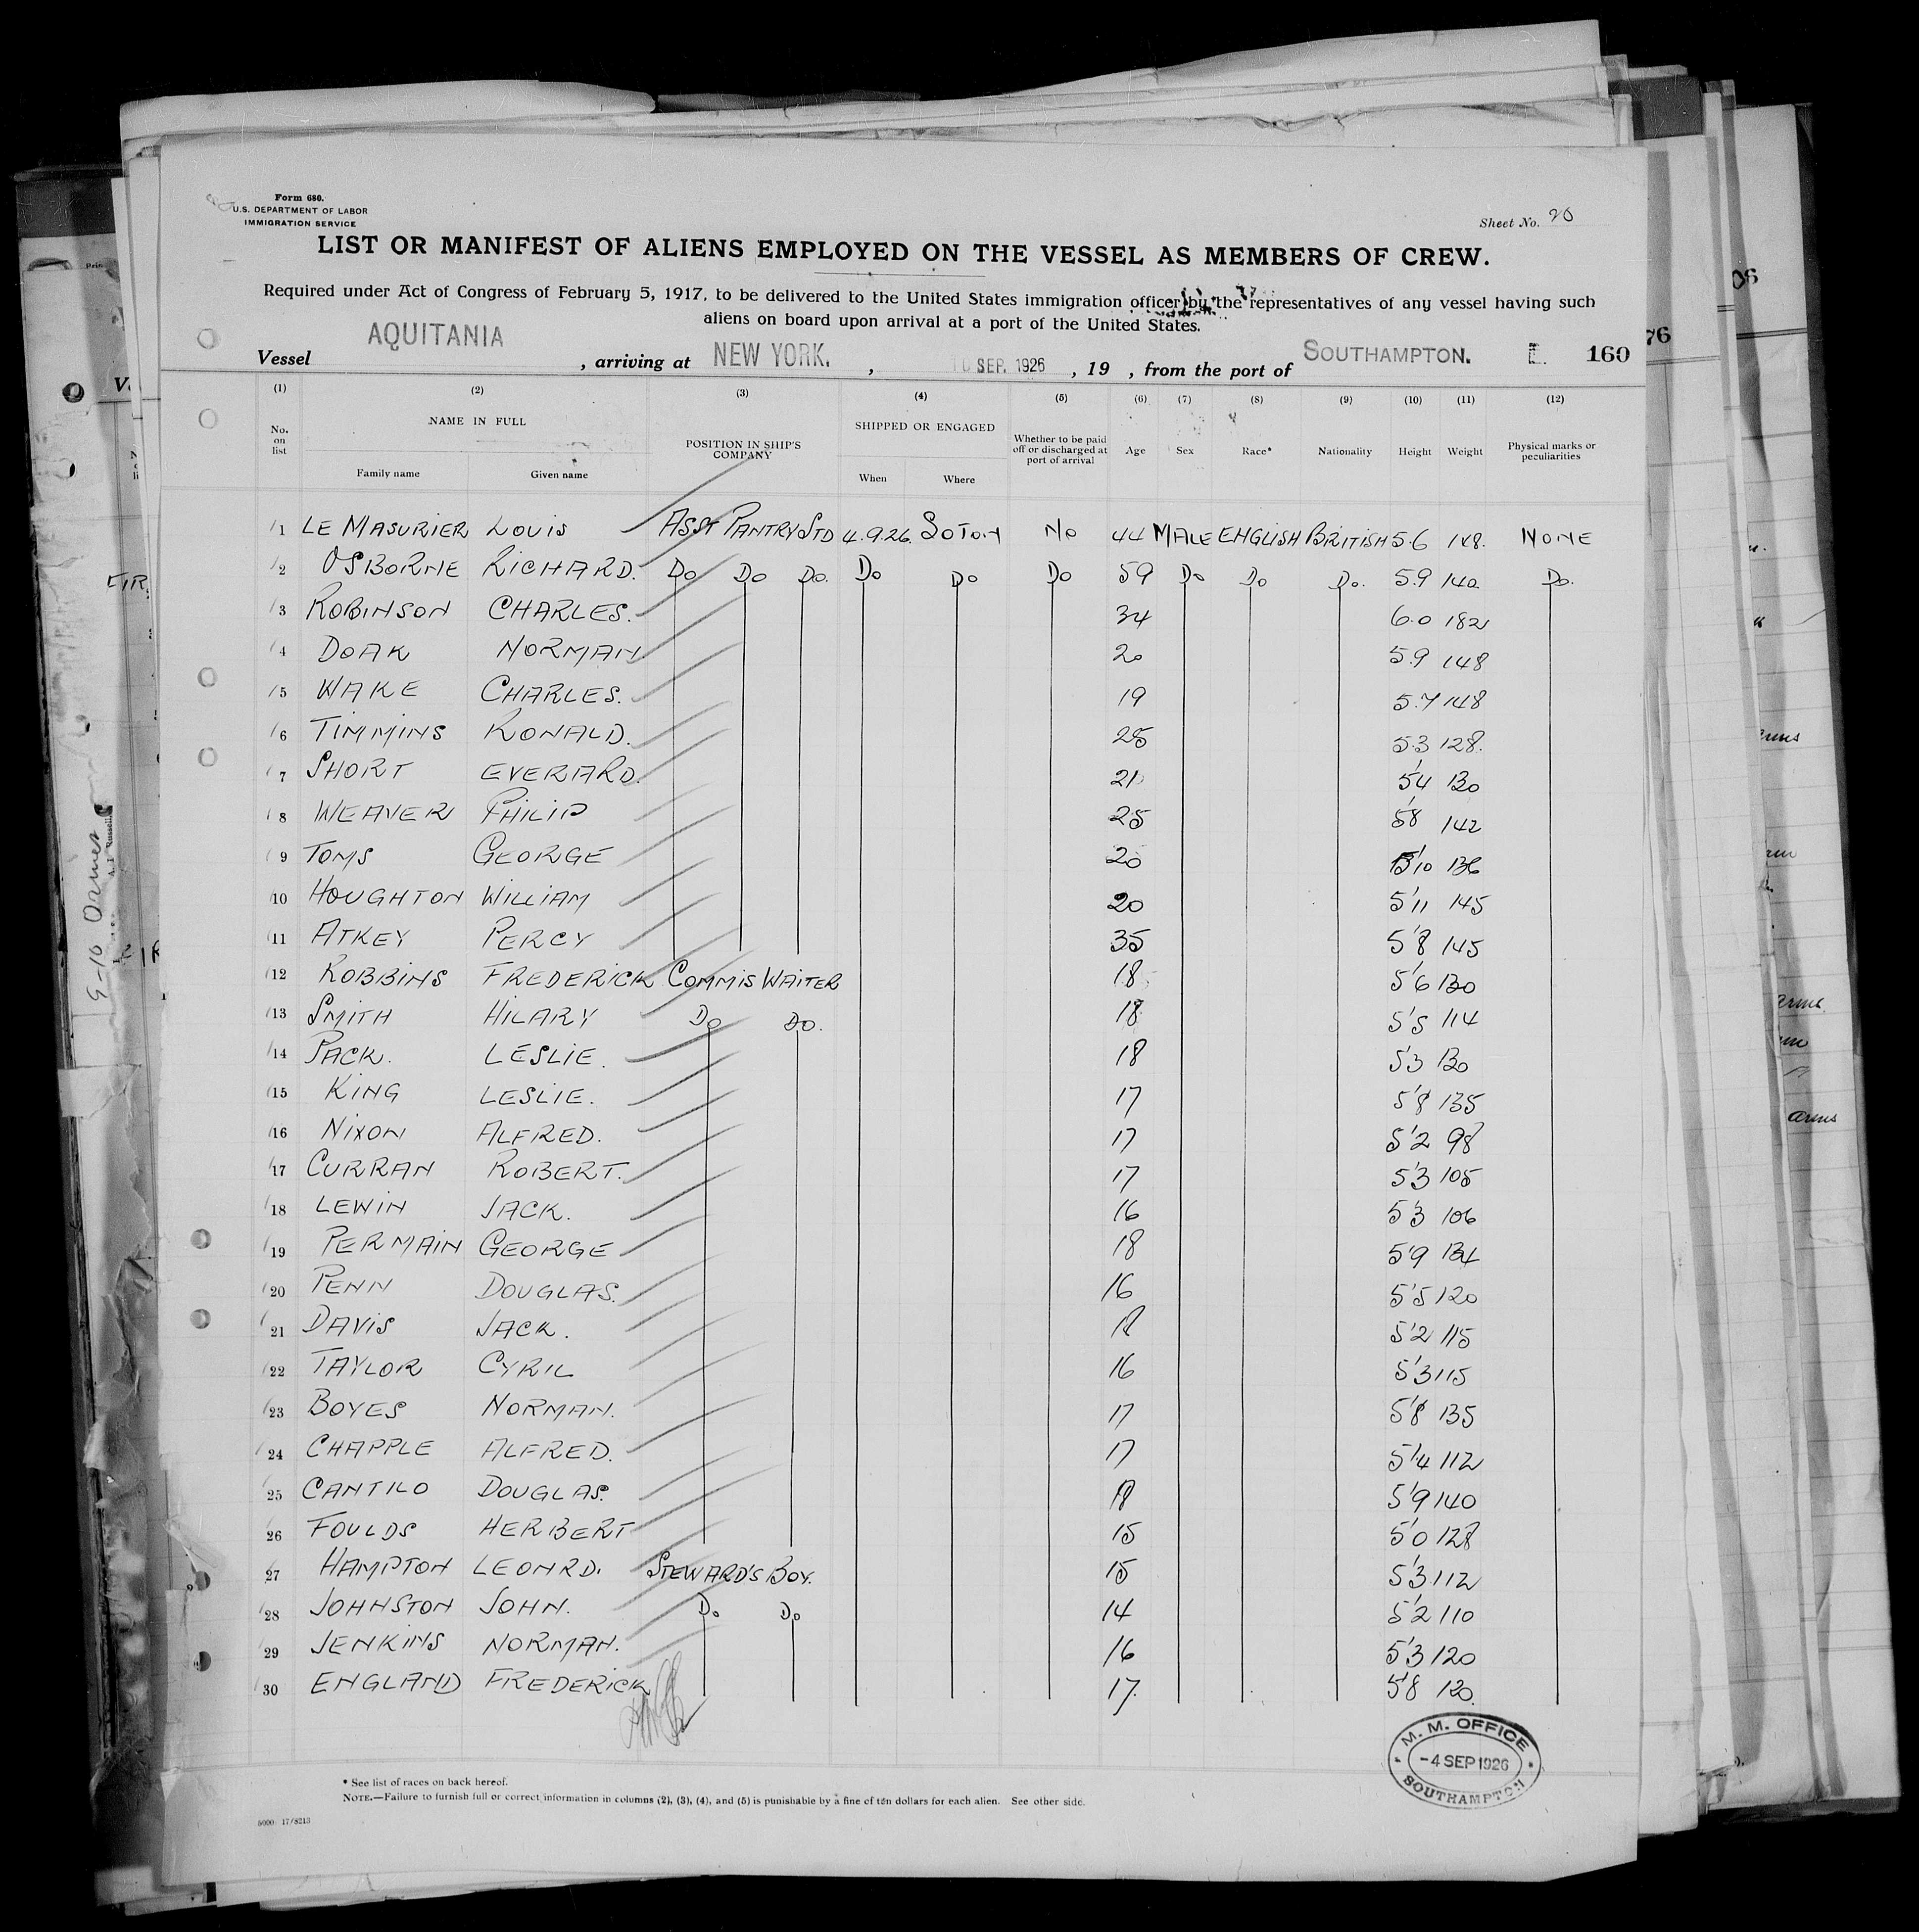 Form 680.
U.S. DEPARTMENT OF LABOR
IMMIGRATION SERVICE
Sheet No. 20
LIST OR MANIFEST OF ALIENS EMPLOYED ON THE VESSEL AS MEMBERS OF CREW.
Required under Act of Congress of February 5, 1917, to be delivered to the United States immigration officer by the representatives of any vessel having such
aliens on board upon arrival at a port of the United States.
Vessel AQUITANIA , arriving at NEW YORK. , 10 SEP. 1926 , 19 , from the port of SOUTHAMPTON. E. 160
(1) (2) (3) (4) (5) (6) (7) (8) (9) (10) (11) (12)
No. on list NAME IN FULL Family name Given name POSITION IN SHIP'S COMPANY SHIPPED OR ENGAGED When Where Whether to be paid off or discharged at port of arrival Age Sex Race* Nationality Height Weight Physical marks or peculiarities
1 LE MASURIER LOUIS ASST PANTRY STD 4.9.26. SOTON NO 44 MALE ENGLISH BRITISH 5.6 148. NONE
2 OSBORNE RICHARD. DO DO DO. DO DO DO 59 DO DO DO. 5.9 140 DO.
3 ROBINSON CHARLES. 34 6.0 182
4 DOAK NORMAN 20 5.9 148
5 WAKE CHARLES. 19 5.7 148
6 TIMMINS RONALD. 25 5.3 128.
7 SHORT EVERARD. 21 5'4 130
8 WEAVER PHILIP 25 5'8 142
9 TOMS GEORGE 20 5'10 136
10 HOUGHTON WILLIAM 20 5'11 145
11 ATKEY PERCY 35 5'8 145
12 ROBBINS FREDERICK COMMIS WAITER 18 5'6 130
13 SMITH HILARY DO DO. 18 5'5 114
14 PACK. LESLIE. 18 5'3 130
15 KING LESLIE. 17 5'8 135
16 NIXON ALFRED. 17 5'2 98
17 CURRAN ROBERT. 17 5'3 105
18 LEWIN JACK. 16 5'3 106
19 PERMAIN GEORGE 18 5'9 134
20 PENN DOUGLAS. 16 5'5 120
21 DAVIS JACK. 18 5'2 115
22 TAYLOR CYRIL 16 5'3 115
23 BOYES NORMAN. 17 5'8 135
24 CHAPPLE ALFRED. 17 5'4 112
25 CANTILO DOUGLAS. 18 5'9 140
26 FOULDS HERBERT 15 5'0 128
27 HAMPTON LEONRD. STEWARD'S BOY. 15 5'3 112
28 JOHNSTON JOHN. DO DO 14 5'2 110
29 JENKINS NORMAN. 16 5'3 120
30 ENGLAND FREDERICK 17. 5'8 120.
M. M. OFFICE
-4 SEP 1926
SOUTHAMPTON
* See list of races on back hereof.
NOTE.—Failure to furnish full or correct information in columns (2), (3), (4), and (5) is punishable by a fine of ten dollars for each alien. See other side.
5000 17/8213
76
arms